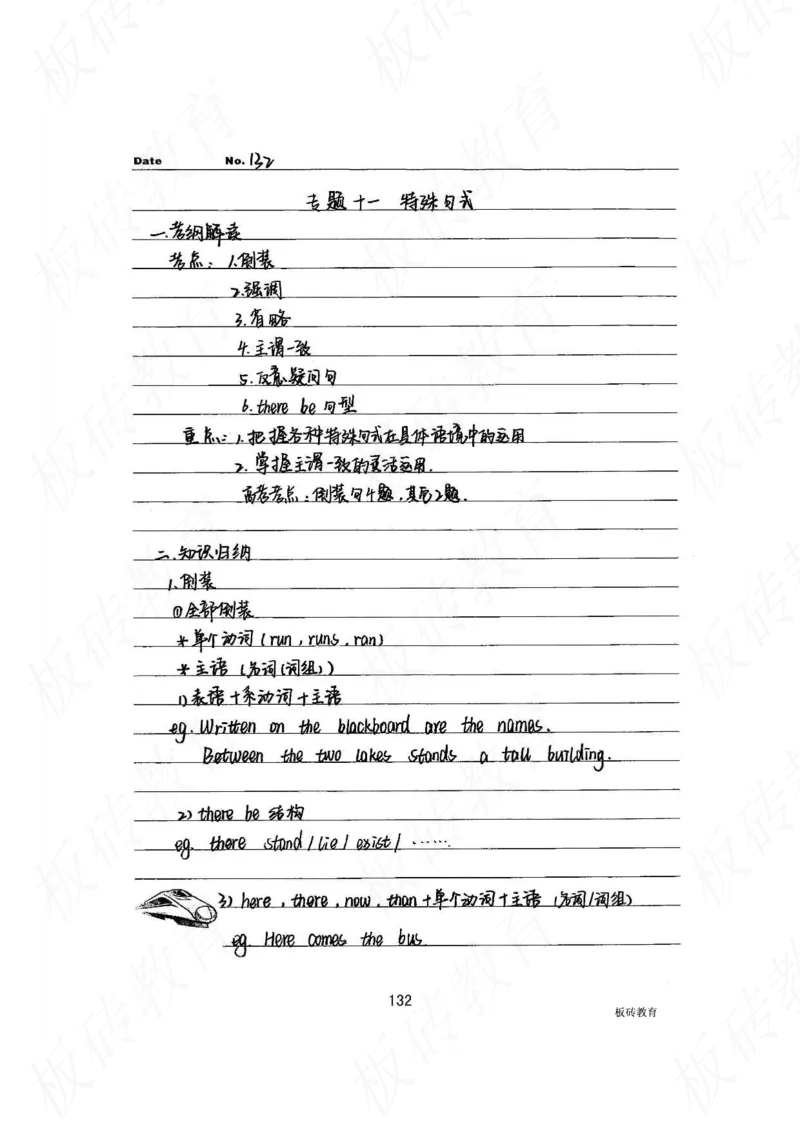 Date No. 132
专题十一 特殊句式
一.考纲解读
考点：1.倒装
2.强调
3.省略
4.主谓一致
5.反意疑问句
6.there be 句型
重点：1.把握各种特殊句式在具体语境中的运用
2.掌握主谓一致的灵活运用.
高考考点：倒装句4题，其它2题.
二.知识归纳
1.倒装
①全部倒装
*单个动词(run, runs, ran)
*主语(名词(词组))
1)表语+系动词+主语
eg. Written on the blackboard are the names.
Between the two lakes stands a tall building.
2) there be 结构
eg. there stand / lie / exist / ……
3) here, there, now, then +单个动词+主语 (名词/词组)
eg. Here comes the bus.
132
板砖教育